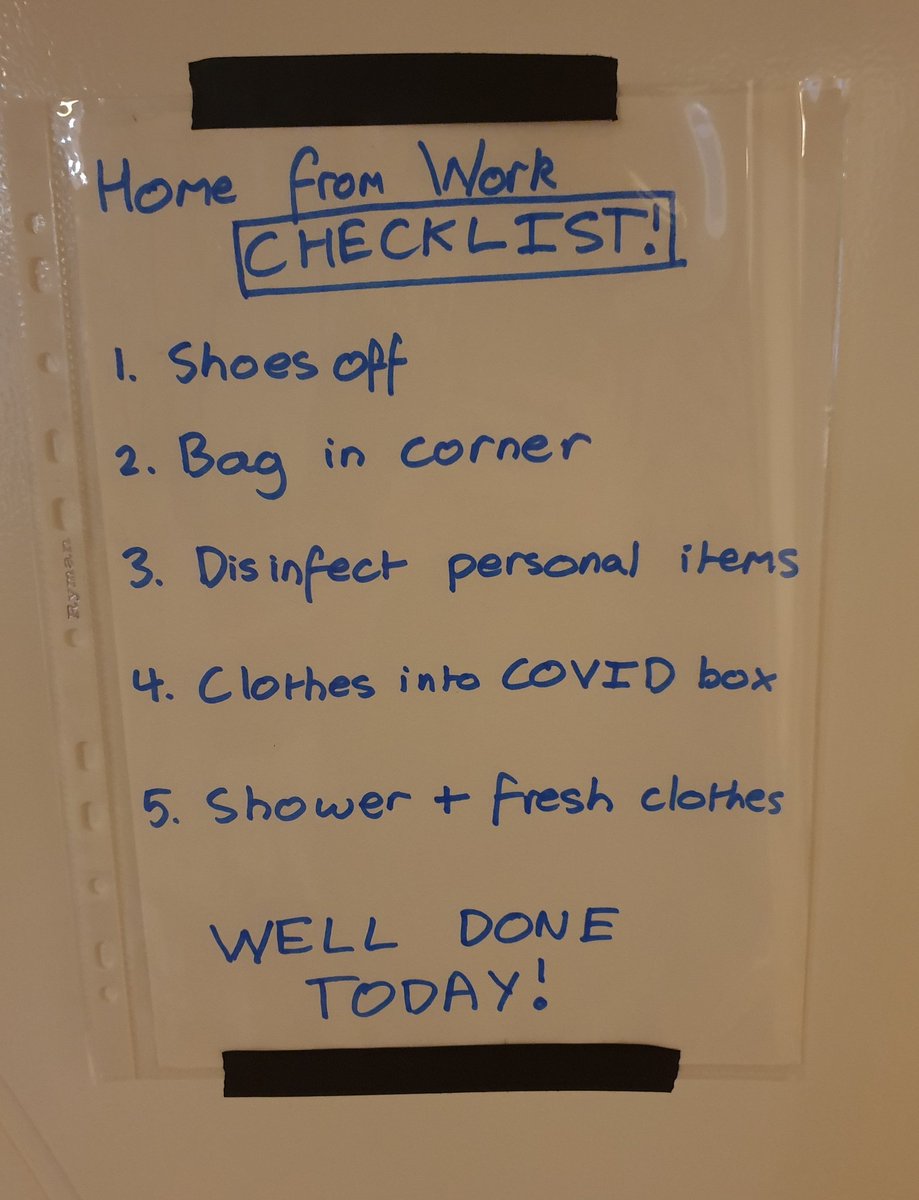 Home from Work
CHECKLIST!
1. Shoes off
2. Bag in corner
3. Disinfect personal items
4. Clothes into COVID box
5. Shower + fresh clothes
WELL DONE
TODAY!
Ryman